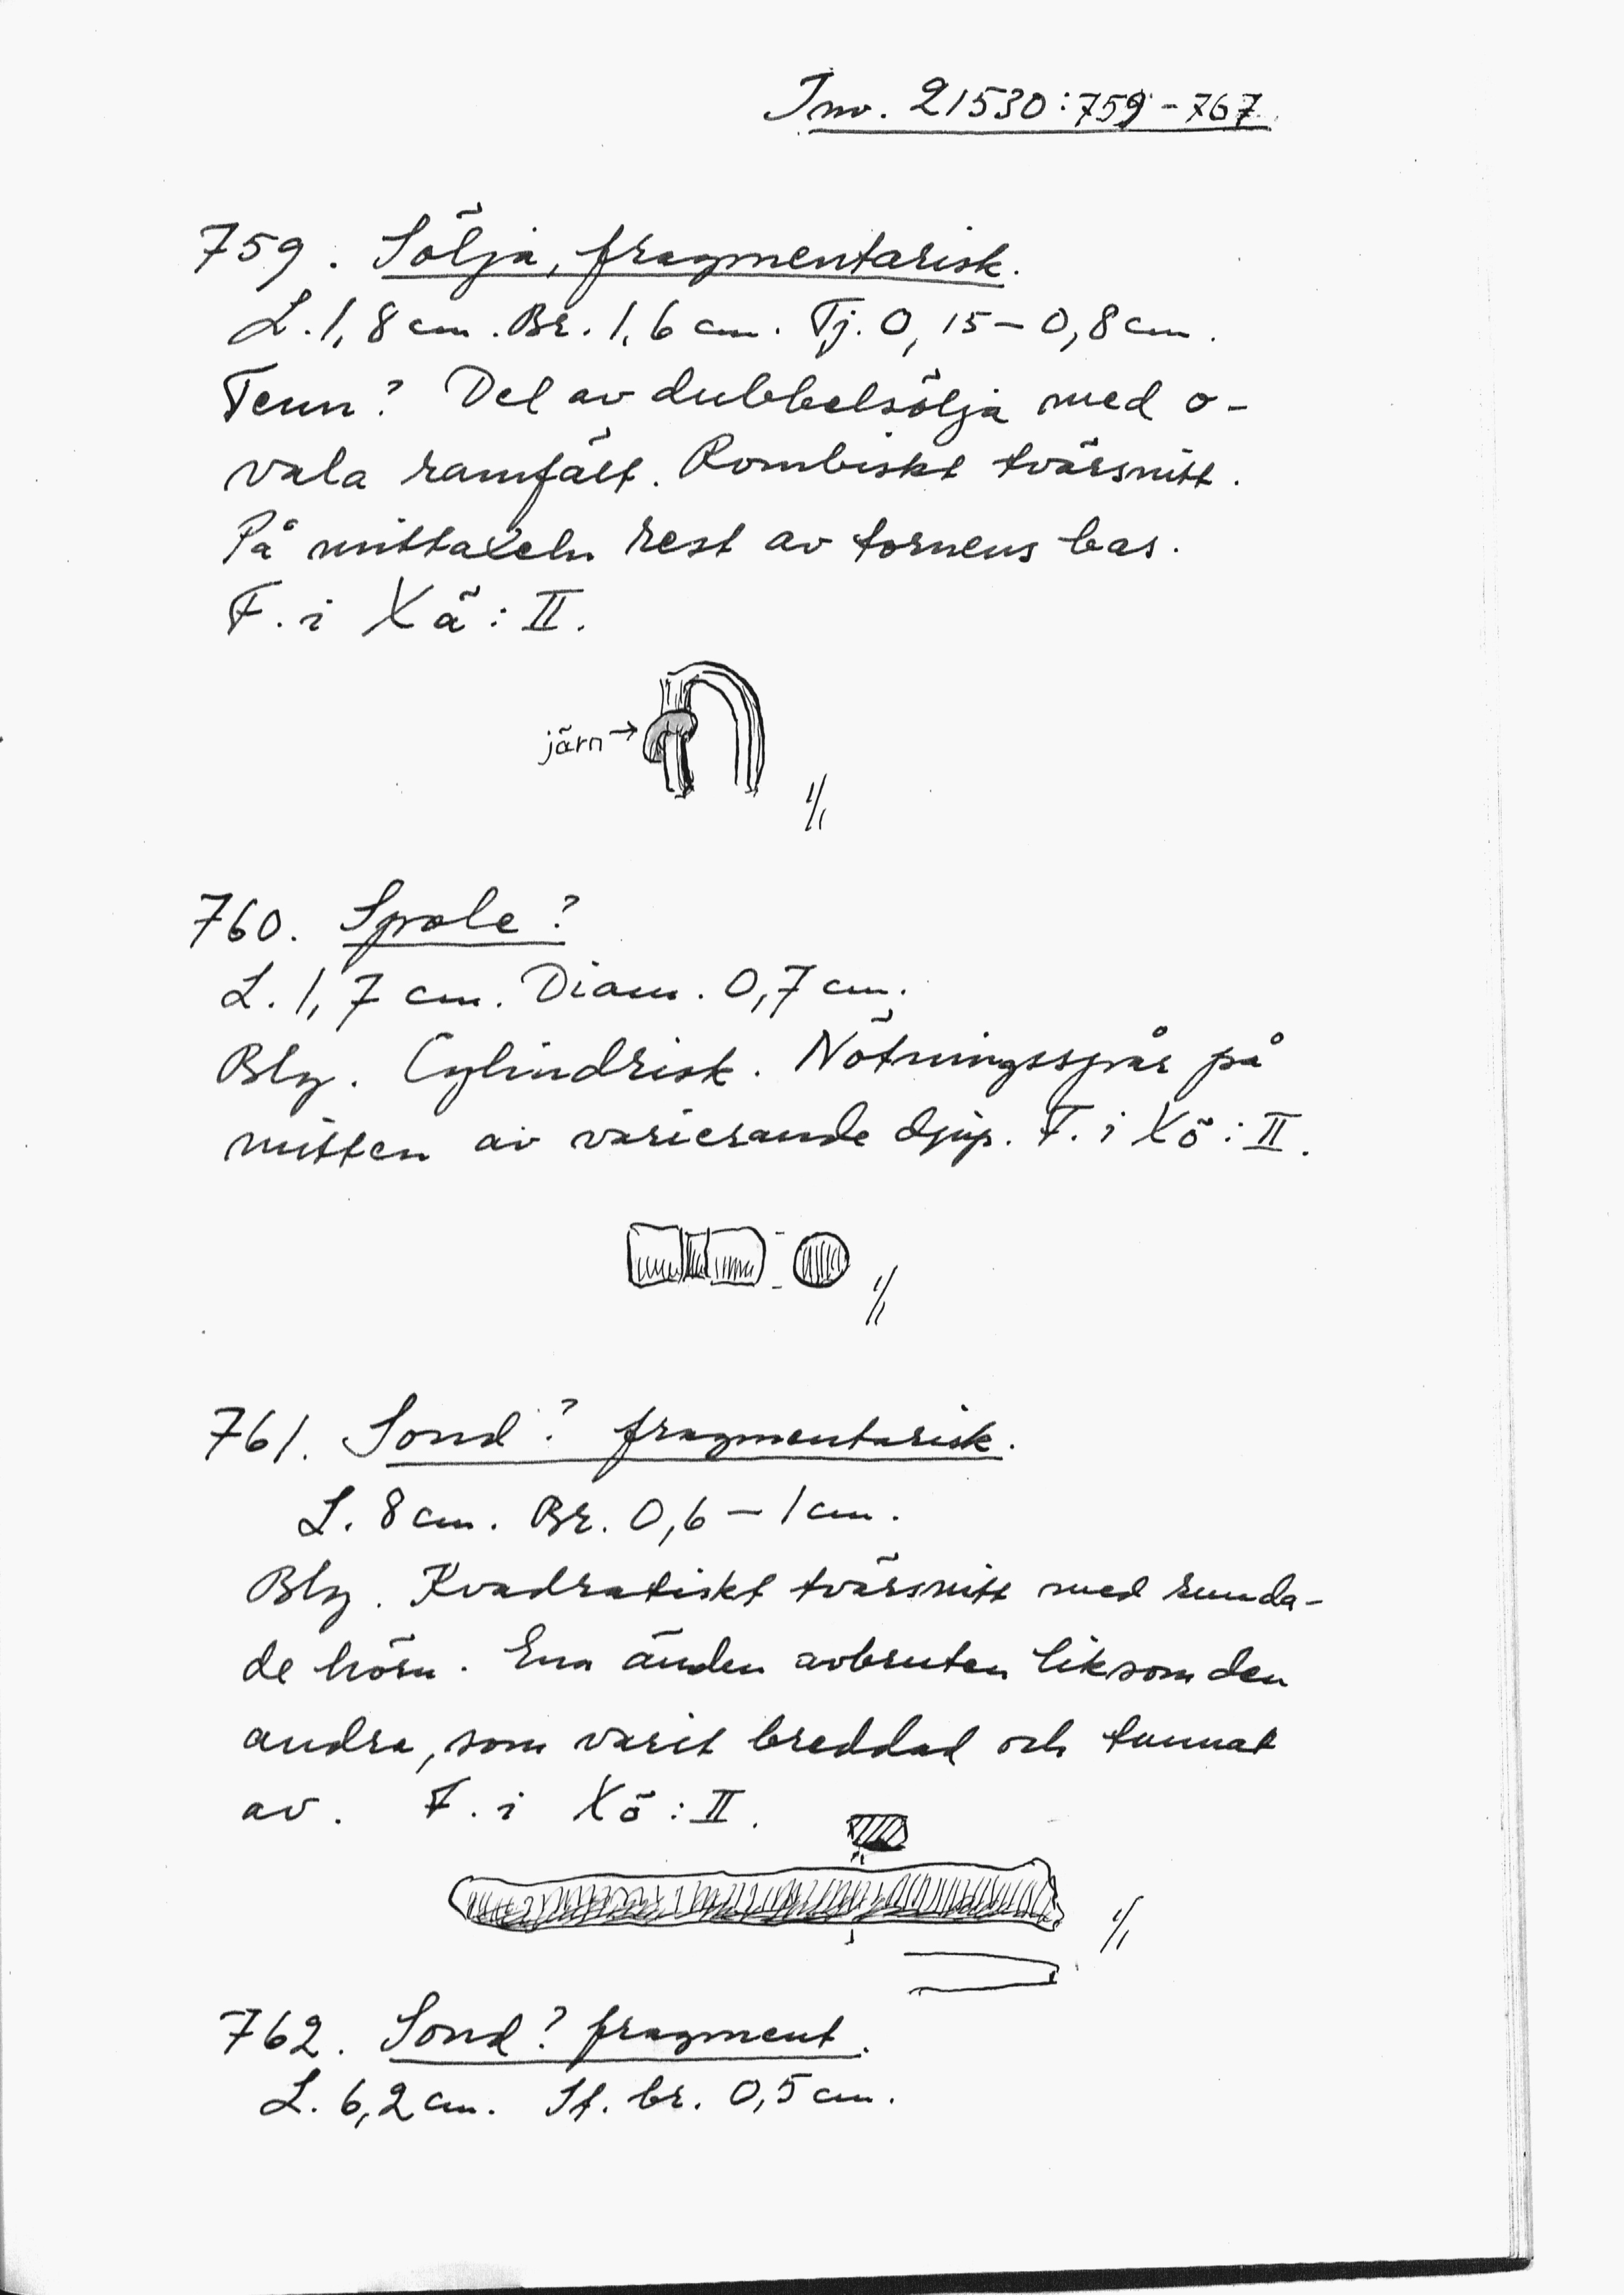 Inv. 21530:759-767
759. Sölja, fragmentarisk.
L. 1,8 cm. Br. 1,6 cm. Tj. 0,15-0,8 cm.
Tenn? Del av dubbelsölja med o-
vala ramfält. Rombiskt tvärsnitt.
På mittaxeln rest av tornens bas.
F. i Xä:II.
järn→
1/1
760. Spole?
L. 1,7 cm. Diam. 0,7 cm.
Bly. Cylindrisk. Nötningsspår på
mitten av varierande djup. F. i Xö:II.
1/1
761. Sond? fragmentarisk.
L. 8 cm. Br. 0,6-1 cm.
Bly. Kvadratiskt tvärsnitt med runda-
de hörn. Ena änden avbruten liksom den
andra, som varit breddad och tunnat
av. F. i Xö:II.
1/1
762. Sond? fragment.
L. 6,2 cm. St. br. 0,5 cm.